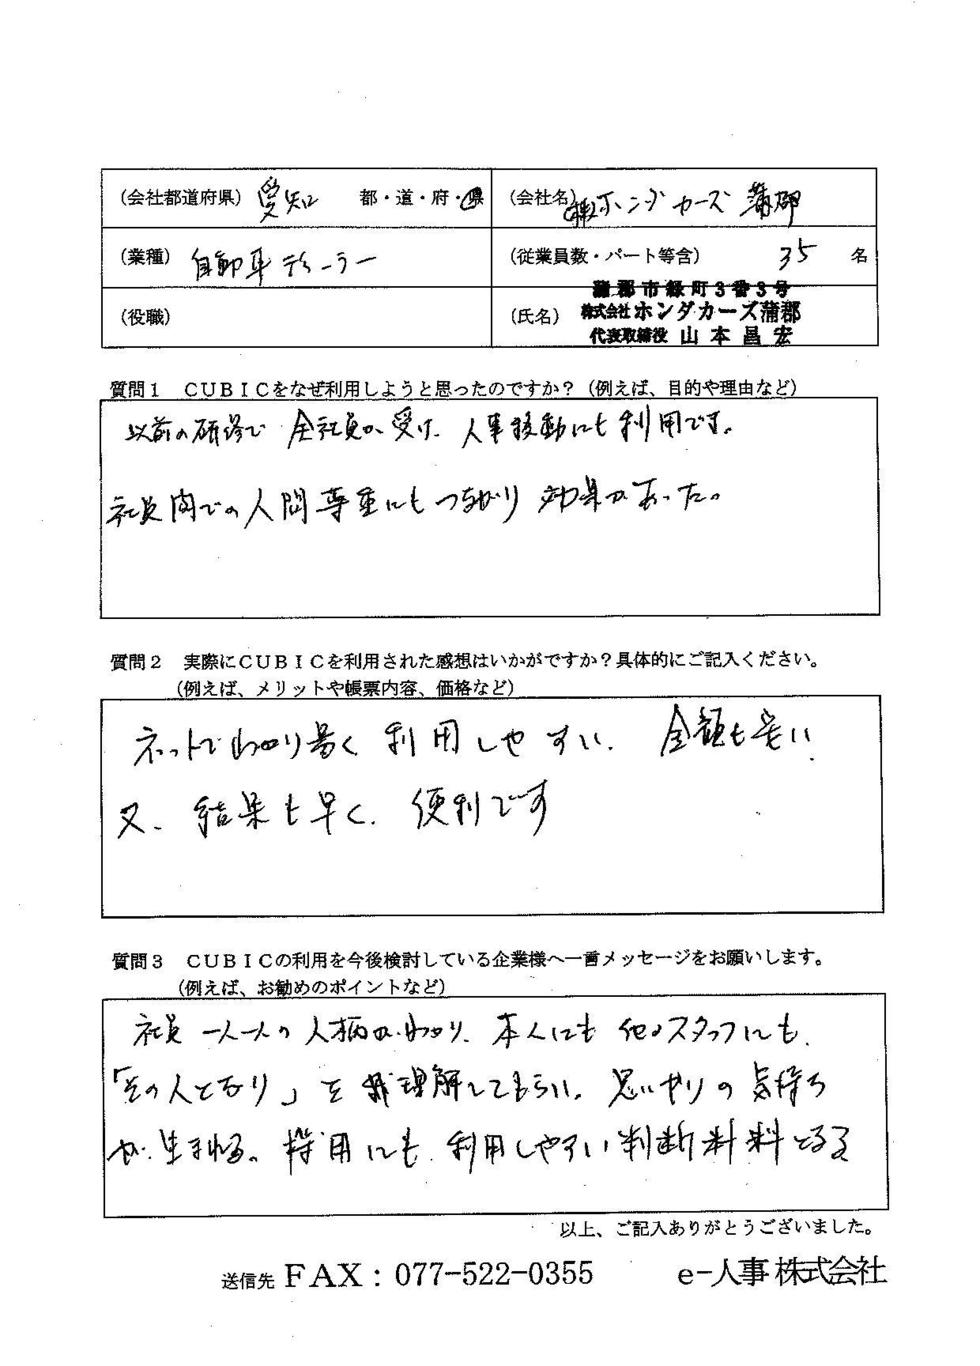 (会社都道府県) 愛知 都・道・府・県 (会社名) (株)ホンダカーズ蒲郡
(業種) 自動車ディーラー (従業員数・パート等含) 35 名
蒲郡市緑町3番3号
(役職) (氏名) 株式会社ホンダカーズ蒲郡
代表取締役 山本昌宏
質問1 CUBICをなぜ利用しようと思ったのですか?(例えば、目的や理由など)
以前の研修で 全社員が受け、人事移動にも利用です。
社員間での人間尊重にもつながり 効果があった。
質問2 実際にCUBICを利用された感想はいかがですか?具体的にご記入ください。
(例えば、メリットや帳票内容、価格など)
ネットでわかり易く 利用しやすい、 金額も安い
又、結果も早く、便利です
質問3 CUBICの利用を今後検討している企業様へ一言メッセージをお願いします。
(例えば、お勧めのポイントなど)
社員 一人一人の人柄がわかり、本人にも 他のスタッフにも、
「その人となり」を 理解してもらい、思いやりの気持ち
が、生まれる。採用にも、利用しやすい判断材料となる
以上、ご記入ありがとうございました。
送信先 FAX:077-522-0355 e-人事株式会社